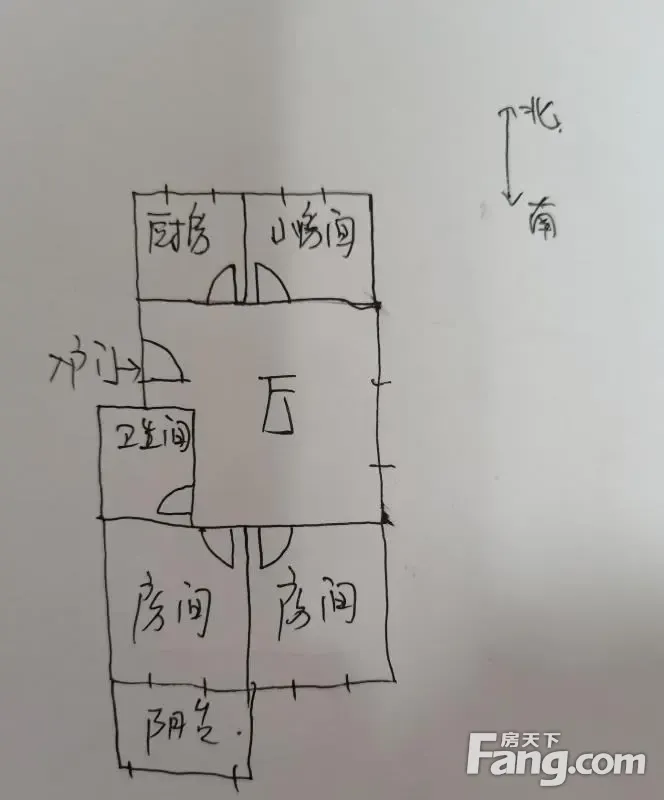 北
南
厨房
小房间
入户门
厅
卫生间
房间
房间
阳台
房天下
Fang.com